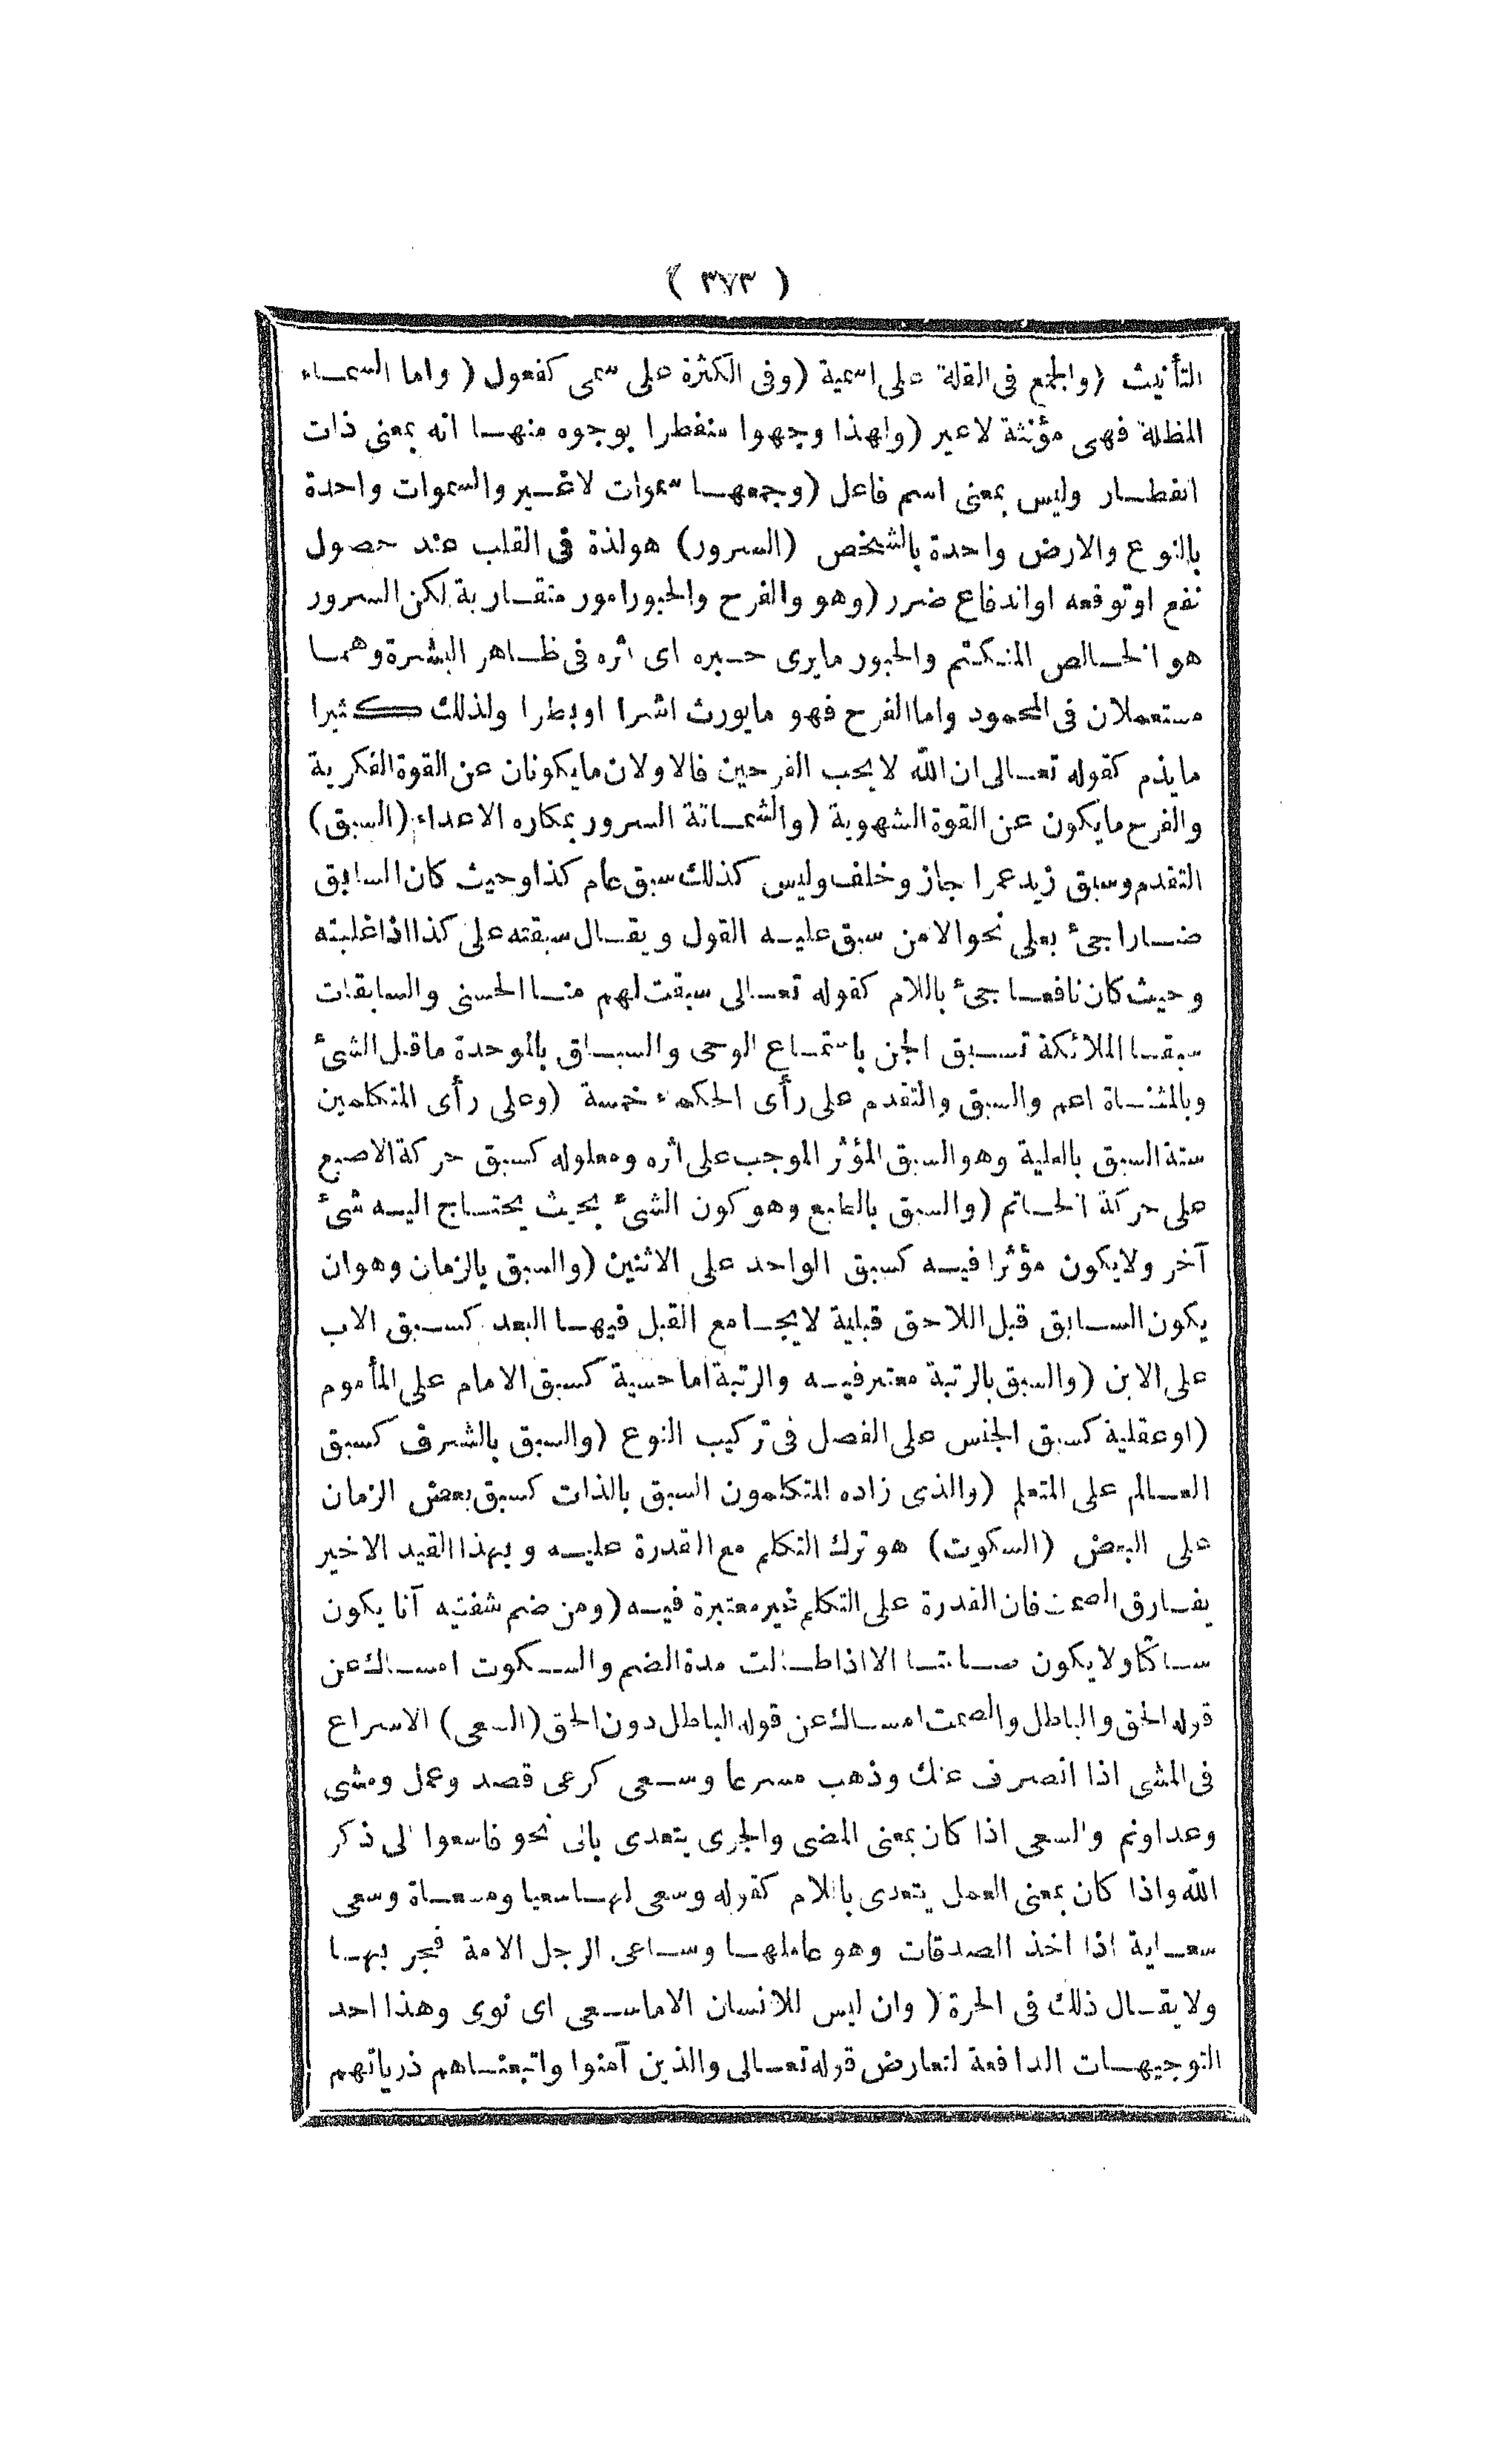 ( ٣٧٣ )
التأنيث (والجمع فى القلة على اسمية (وفى الكثرة على سمى كفعول ( واما السماء
المظلة فهى مؤنثة لاغير (ولهذا وجهوا منفطرا بوجوه منها انه بمعنى ذات
انفطار وليس بمعنى اسم فاعل (وجمعها سموات لاغير والسموات واحدة
بالنوع والارض واحدة بالشخص (السرور) هولذة فى القلب عند حصول
نفع اوتوقعه اواندفاع ضرر (وهو والفرح والحبورامور متقاربة لكن السرور
هو الخالص المنكتم والحبور مايرى حبره اى اثره فى ظاهر البشرة وهما
مستعملان فى المحمود واماالفرح فهو مايورث اشرا اوبطرا ولذلك كثيرا
مايذم كقوله تعالى ان الله لايحب الفرحين فالاولان مايكونان عن القوة الفكرية
والفرح مايكون عن القوة الشهوية (والشماتة السرور بمكاره الاعداء (السبق)
التقدم وسبق زيد عمرا جاز وخلف وليس كذلك سبق عام كذا وحيث كان السابق
ضارا جئ بعلى نحو الامن سبق عليه القول ويقال سبقته على كذا اذاغلبته
وحيث كان نافعا جئ باللام كقوله تعالى سبقت لهم منا الحسنى والسابقات
سبقا الملائكة تسبق الجن باستماع الوحى والسباق بالموحدة ماقبل الشئ
وبالمثناة اعم والسبق والتقدم على رأى الحكماء خمسة (وعلى رأى المتكلمين
ستة السبق بالعلية وهوالسبق المؤثر الموجب على اثره ومعلوله كسبق حركة الاصبع
على حركة الخاتم (والسبق بالطبع وهو كون الشئ بحيث يحتاج اليه شئ
آخر ولايكون مؤثرا فيه كسبق الواحد على الاثنين (والسبق بالزمان وهوان
يكون السابق قبل اللاحق قبلية لايجامع القبل فيها البعد كسبق الاب
على الابن (والسبق بالرتبة معتبرفيه والرتبة اما حسية كسبق الامام على المأموم
(اوعقلية كسبق الجنس على الفصل فى تركيب النوع (والسبق بالشرف كسبق
العالم على المتعلم (والذى زاده المتكلمون السبق بالذات كسبق بعض الزمان
على البعض (السكوت) هو ترك التكلم مع القدرة عليه وبهذا القيد الاخير
يفارق الصمت فان القدرة على التكلم غير معتبرة فيه (ومن ضم شفتيه آنا يكون
ساكتا ولايكون صامتا الا اذا طالت مدة الضم والسكوت امساك عن
قوله الحق والباطل والصمت امساك عن قوله الباطل دون الحق (السعى) الاسراع
فى المشى اذا انصرف عنك وذهب مسرعا وسعى كرعى قصد وعمل ومشى
وعدا ونم والسعى اذا كان بمعنى المضى والجرى يتعدى بالى نحو فاسعوا الى ذكر
الله واذا كان بمعنى العمل يتعدى باللام كقوله وسعى لها سعيا ومسعاة وسعى
سعاية اذا اخذ الصدقات وهو عاملها وساعى الرجل الامة فجر بها
ولايقال ذلك فى الحرة ( وان ليس للانسان الاماسعى اى نوى وهذا احد
التوجيهات الدافعة لتعارض قوله تعالى والذين آمنوا واتبعناهم ذرياتهم